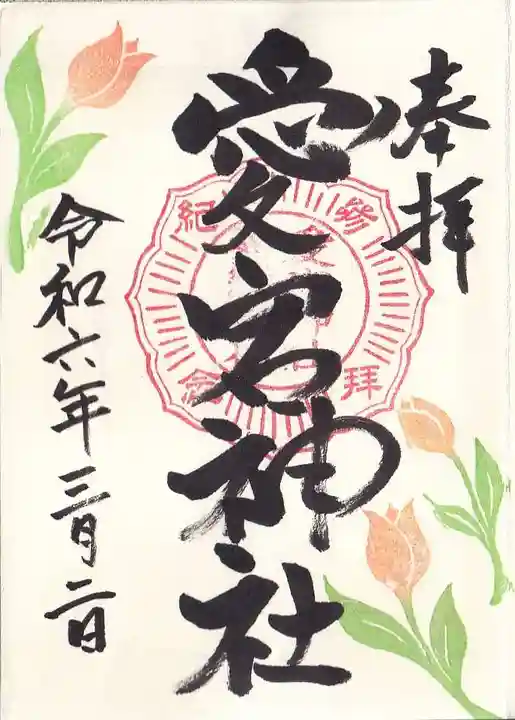 奉拝
愛宕神社
令和六年三月二日
參拝
紀念